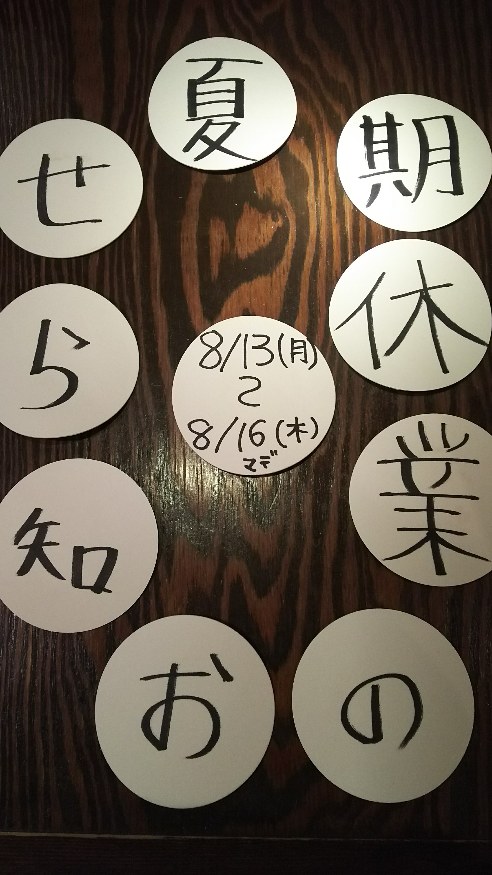 夏
期
休
業
の
お
知
ら
せ
8/13(月)
〜
8/16(木)
マデ